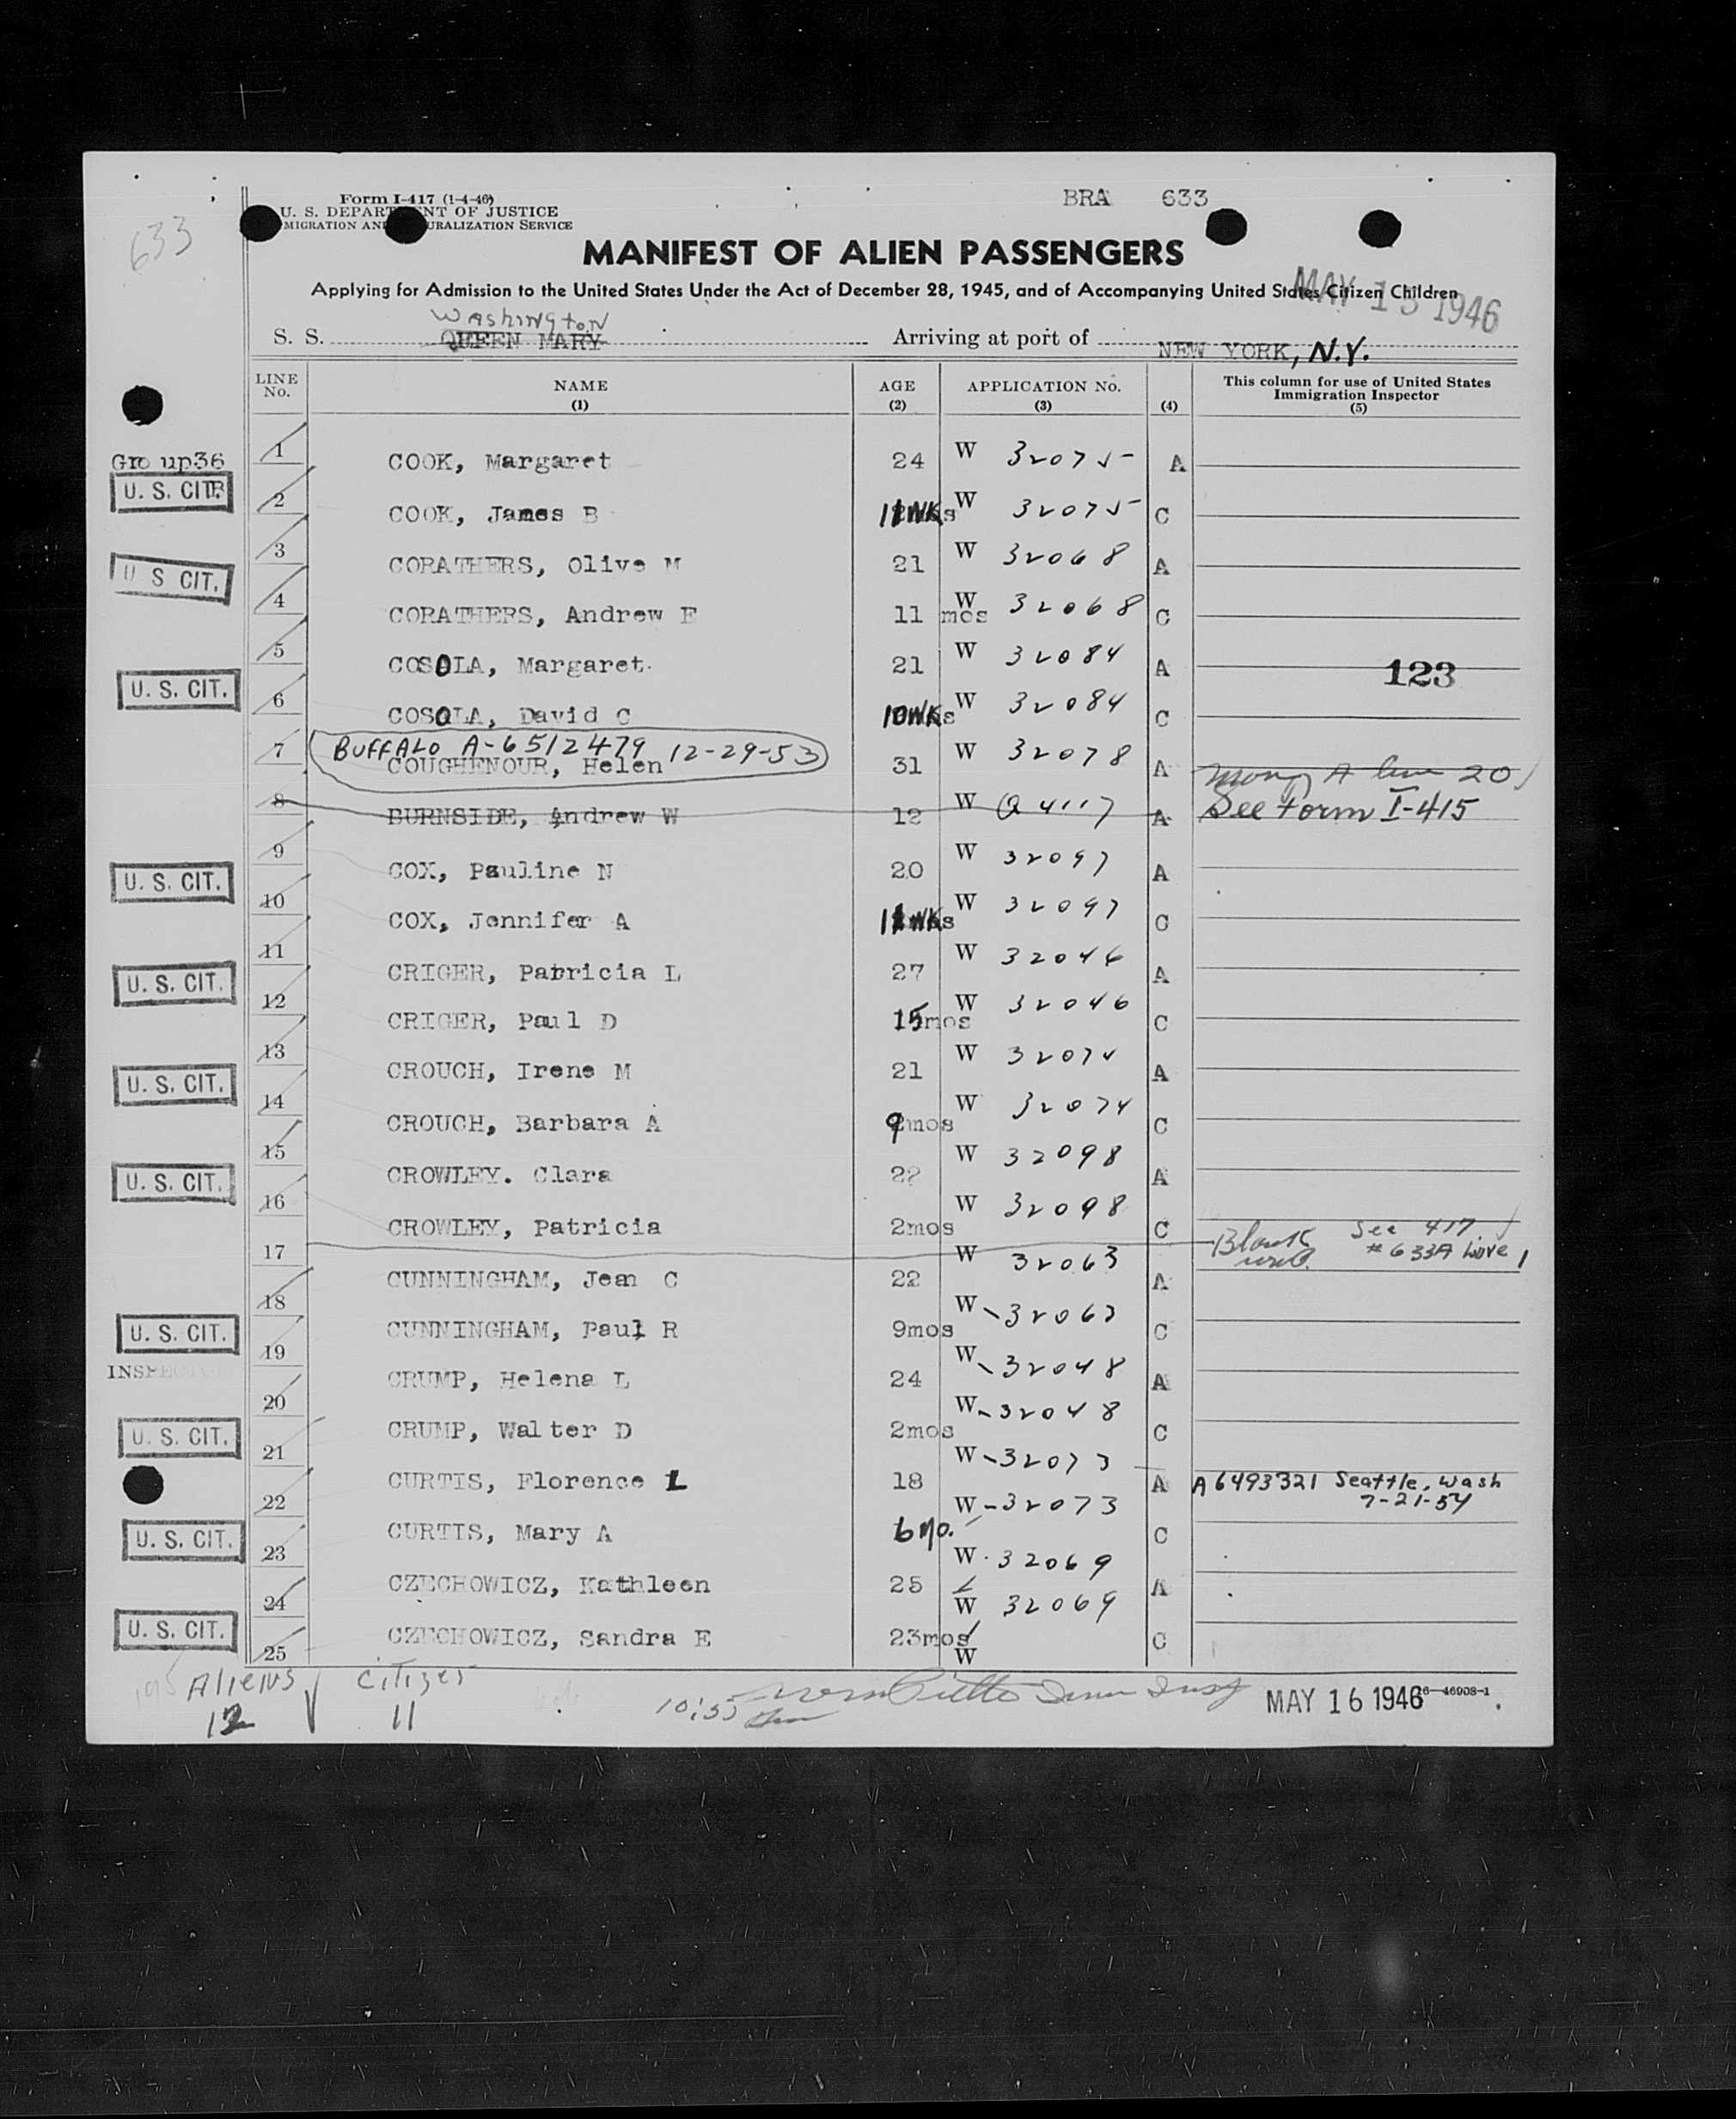 Form I-417 (1-4-46)
U. S. DEPART NT OF JUSTICE
MIGRATION AN URALIZATION SERVICE
BRA 633
633
MANIFEST OF ALIEN PASSENGERS
Applying for Admission to the United States Under the Act of December 28, 1945, and of Accompanying United States Citizen Children
MAY 13 1946
Washington
S. S. QUEEN MARY Arriving at port of NEW YORK, N.Y.
LINE No. NAME (1) AGE (2) APPLICATION No. (3) (4) This column for use of United States Immigration Inspector (5)
Group36
1 COOK, Margaret 24 W 32075 A
U. S. CIT.
2 COOK, James B 11WKs W 32075 C
3 CORATHERS, Olive M 21 W 32068 A
U S CIT.
4 CORATHERS, Andrew E 11 mos W 32068 C
5 COSOLA, Margaret 21 W 32084 A 123
U. S. CIT.
6 COSOLA, David C 10WKs W 32084 C
BUFFALO A-6512479 12-29-53
7 COUGHENOUR, Helen 31 W 32078 A
8 BURNSIDE, Andrew W 12 W Q4117 A line 20 See Form I-415
9 COX, Pauline N 20 W 32097 A
U. S. CIT.
10 COX, Jennifer A WKs W 32097 C
11 CRIGER, Patricia L 27 W 32046 A
U. S. CIT.
12 CRIGER, Paul D 15mos W 32046 C
13 CROUCH, Irene M 21 W 32074 A
U. S. CIT.
14 CROUCH, Barbara A 9mos W 32074 C
15 CROWLEY. Clara 22 W 32098 A
U. S. CIT.
16 CROWLEY, Patricia 2mos W 32098 C
17 Blank See 417 # 633A Line 1
18 CUNNINGHAM, Jean C 22 W 32063 A
U. S. CIT.
19 CUNNINGHAM, Paul R 9mos W-32063 C
INSPEC
20 CRUMP, Helena L 24 W-32048 A
U. S. CIT.
21 CRUMP, Walter D 2mos W-32048 C
22 CURTIS, Florence L 18 W-32073 A A6493321 Seattle, Wash 7-21-54
U. S. CIT.
23 CURTIS, Mary A 6 mo. W-32073 C
24 CZECHOWICZ, Kathleen 25 W 32069 A
U. S. CIT.
25 CZECHOWICZ, Sandra E 23mos W 32069 C
W
Aliens Citizes
12 11
10:55 Imm Insp
MAY 16 1946
16—46908-1